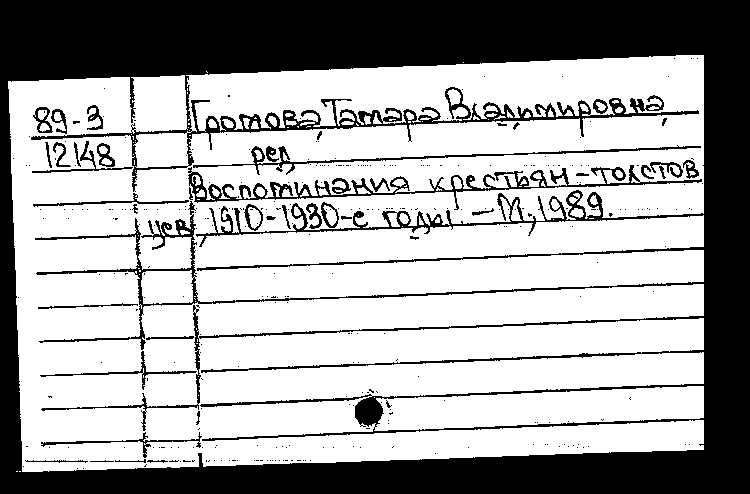 89-3 Громова, Тамара Владимировна,
12148 ред.
Воспоминания крестьян-толстов
цев, 1910-1930-е годы. - М., 1989.